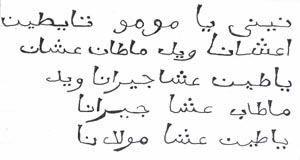 نيني يا مومو تايطين
اعشانا ويلا ماطاب عشان
ياطيب عشا جيرانا ويلا
ماطاب عشا جيرانا
ياطيب عشا مولان نا